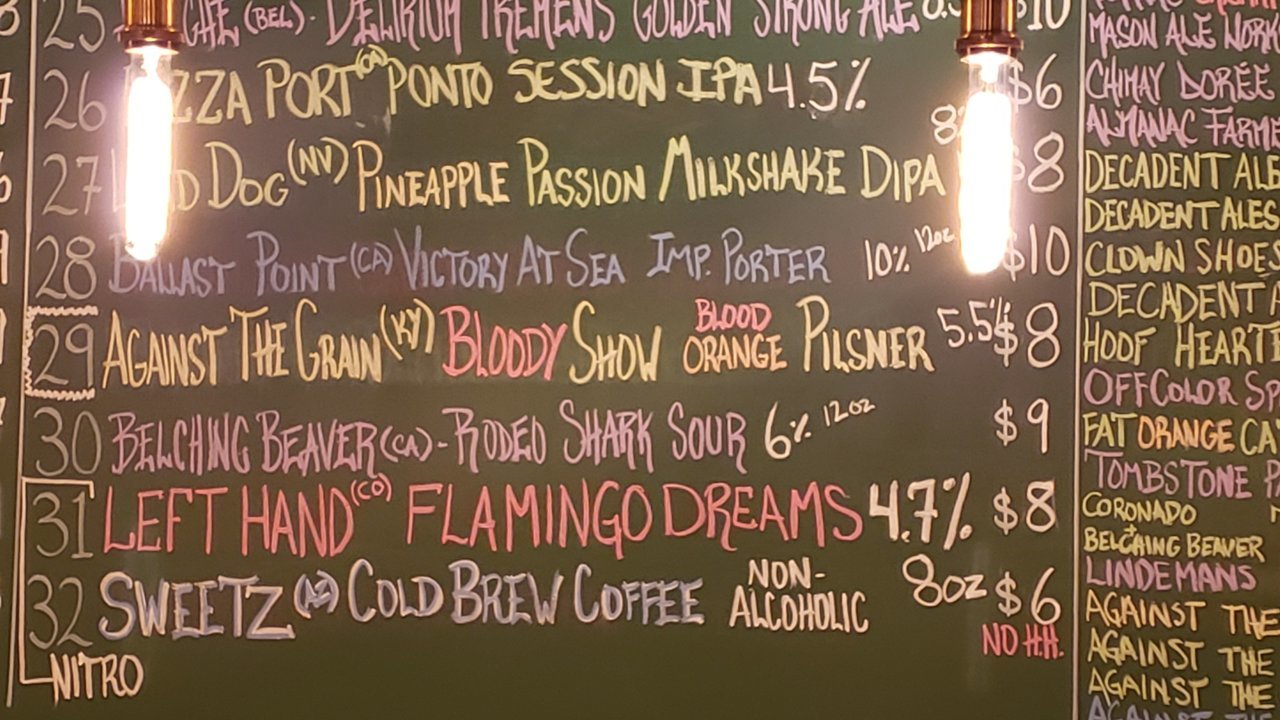 25 (BEL)- DELIRIUM TREMENS GOLDEN STRONG ALE $10
26 PORT (CA) PONTO SESSION IPA 4.5% $6
27 DOG (NV) PINEAPPLE PASSION MILKSHAKE DIPA $8
28 BALLAST POINT (CA) VICTORY AT SEA IMP. PORTER 10% 12oz $10
29 AGAINST THE GRAIN (KY) BLOODY SHOW BLOOD ORANGE PILSNER 5.5% $8
30 BELCHING BEAVER (CA)- RODEO SHARK SOUR 6% 12oz $9
31 LEFT HAND (CO) FLAMINGO DREAMS 4.7% $8
32 SWEETZ (AZ) COLD BREW COFFEE NON-ALCOHOLIC 8oz $6
NO H.H.
NITRO
MASON ALE WORK
CHIMAY DORÉE
ALMANAC FARME
DECADENT ALE
DECADENT ALES
CLOWN SHOES
DECADENT
HOOF HEART
OFF COLOR SP
FAT ORANGE CA
TOMBSTONE
CORONADO
+
BELCHING BEAVER
LINDEMANS
AGAINST THE
AGAINST THE
AGAINST THE